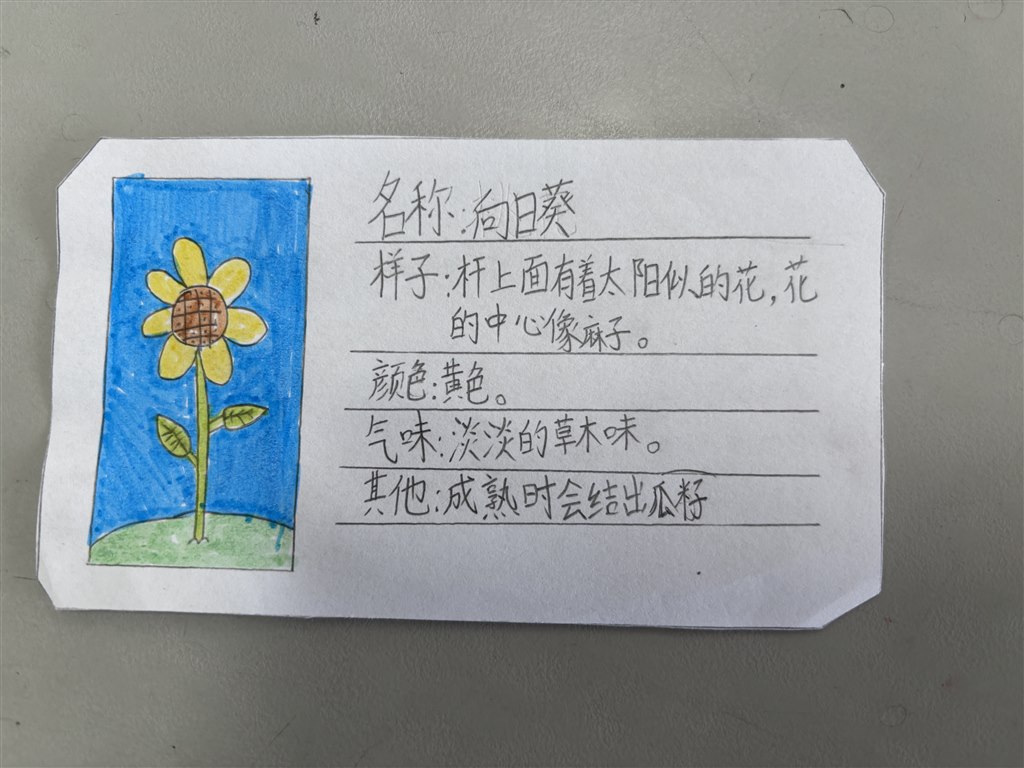 名称:向日葵
样子:杆上面有着太阳似的花,花
的中心像麻子。
颜色:黄色。
气味:淡淡的草木味。
其他:成熟时会结出瓜籽